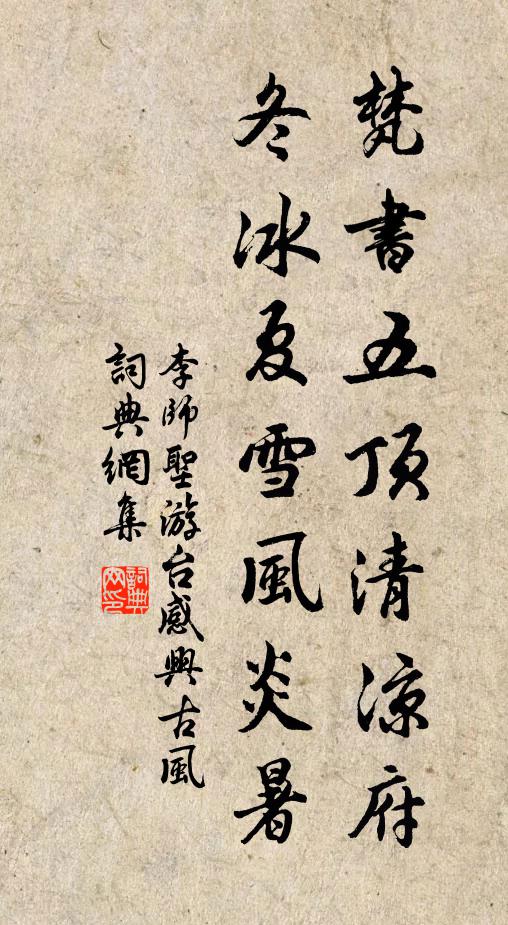 梵書五頂清涼府
冬冰夏雪風炎暑
李師聖游台感興古風
詞典網集
詞典网印